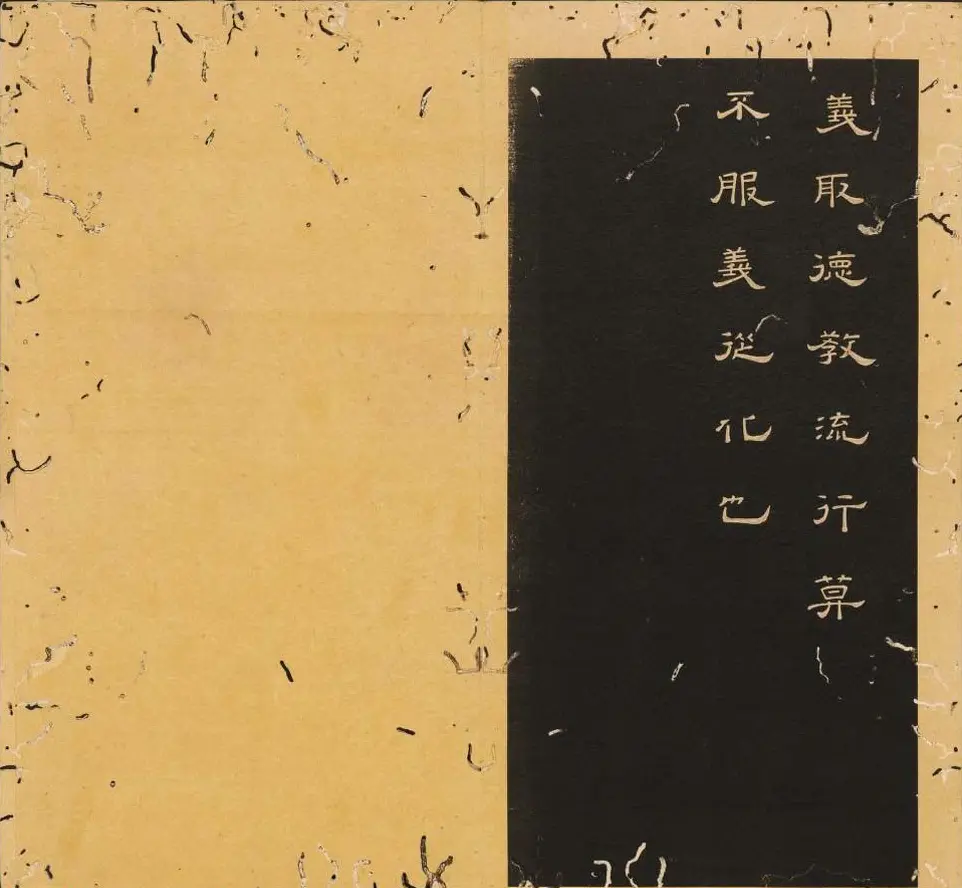 義取德教流行莫
不服義從化也